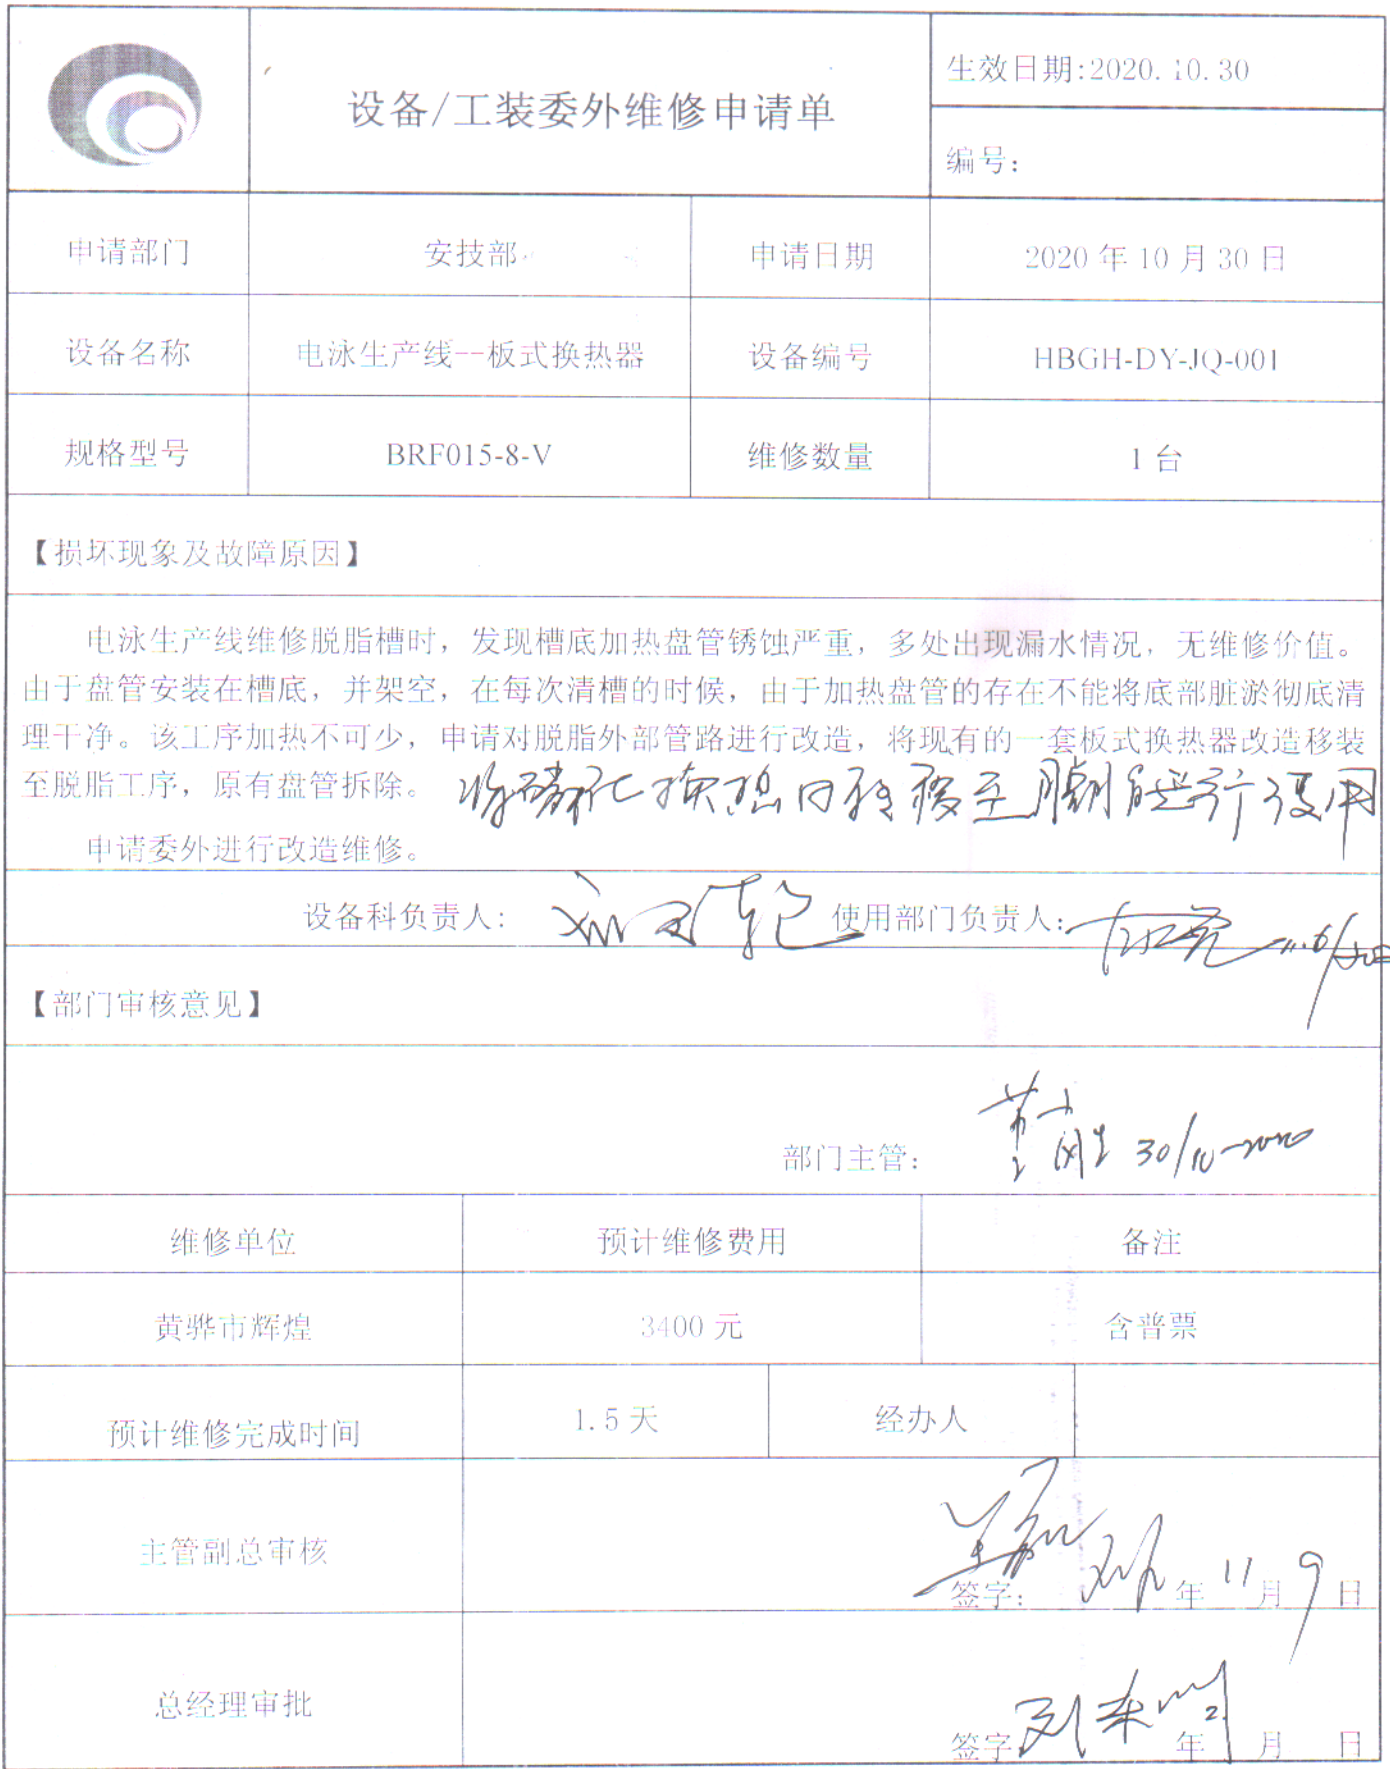 生效日期:2020.10.30
设备/工装委外维修申请单
编号:
申请部门 安技部 申请日期 2020年10月30日
设备名称 电泳生产线--板式换热器 设备编号 HBGH-DY-JQ-001
规格型号 BRF015-8-V 维修数量 1台
【损坏现象及故障原因】
电泳生产线维修脱脂槽时，发现槽底加热盘管锈蚀严重，多处出现漏水情况，无维修价值。
由于盘管安装在槽底，并架空，在每次清槽的时候，由于加热盘管的存在不能将底部脏淤彻底清
理干净。该工序加热不可少，申请对脱脂外部管路进行改造，将现有的一套板式换热器改造移装
至脱脂工序，原有盘管拆除。
将磷化换热
移至脱脂进行复用
申请委外进行改造维修。
设备科负责人: 使用部门负责人:
【部门审核意见】
部门主管: 30/10-2020
维修单位 预计维修费用 备注
黄骅市辉煌 3400元 含普票
预计维修完成时间 1.5天 经办人
主管副总审核
签字: 年 11月 9日
总经理审批
签字 年 月 日